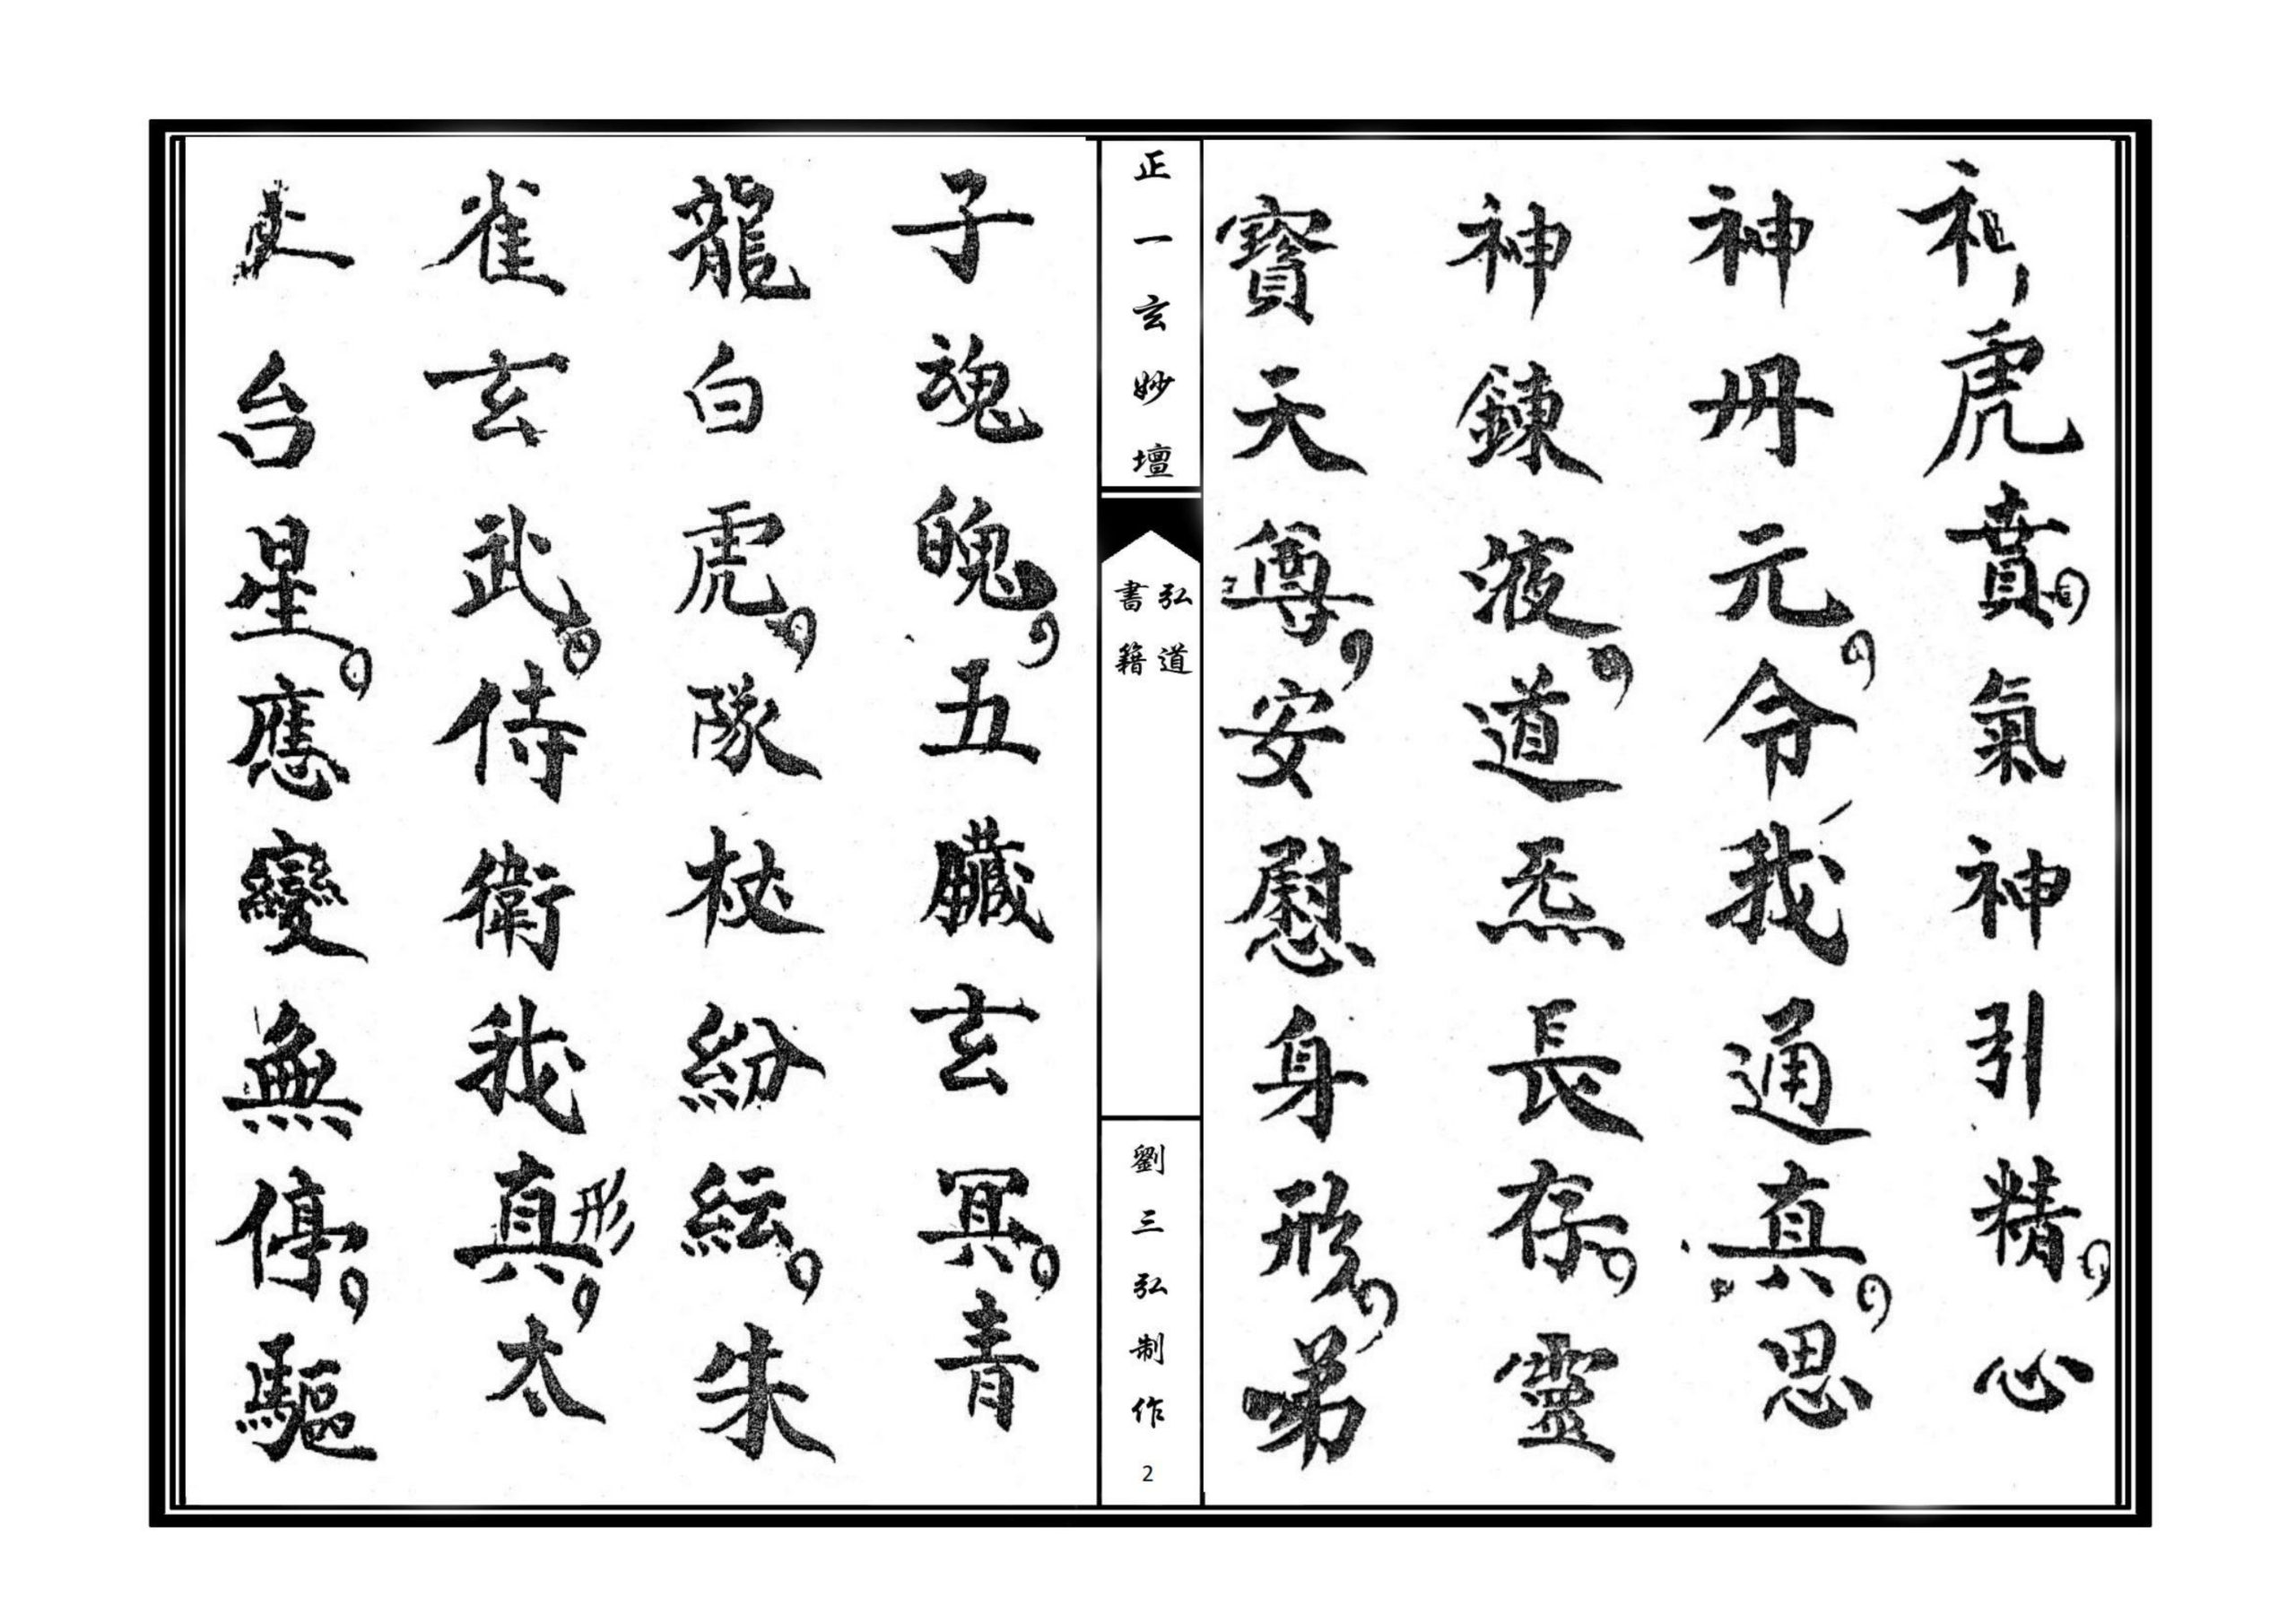 礼虎賁氣神引精心
神丹元令我通真思
神鍊液道炁長存靈
寳天尊安慰身形㖒
正一玄妙壇
弘道
書籍
劉三弘制作
2
子魂魄五臟玄冥青
龍白虎隊杖紛紜朱
雀玄武侍衛我真形太
台星應變無停驅